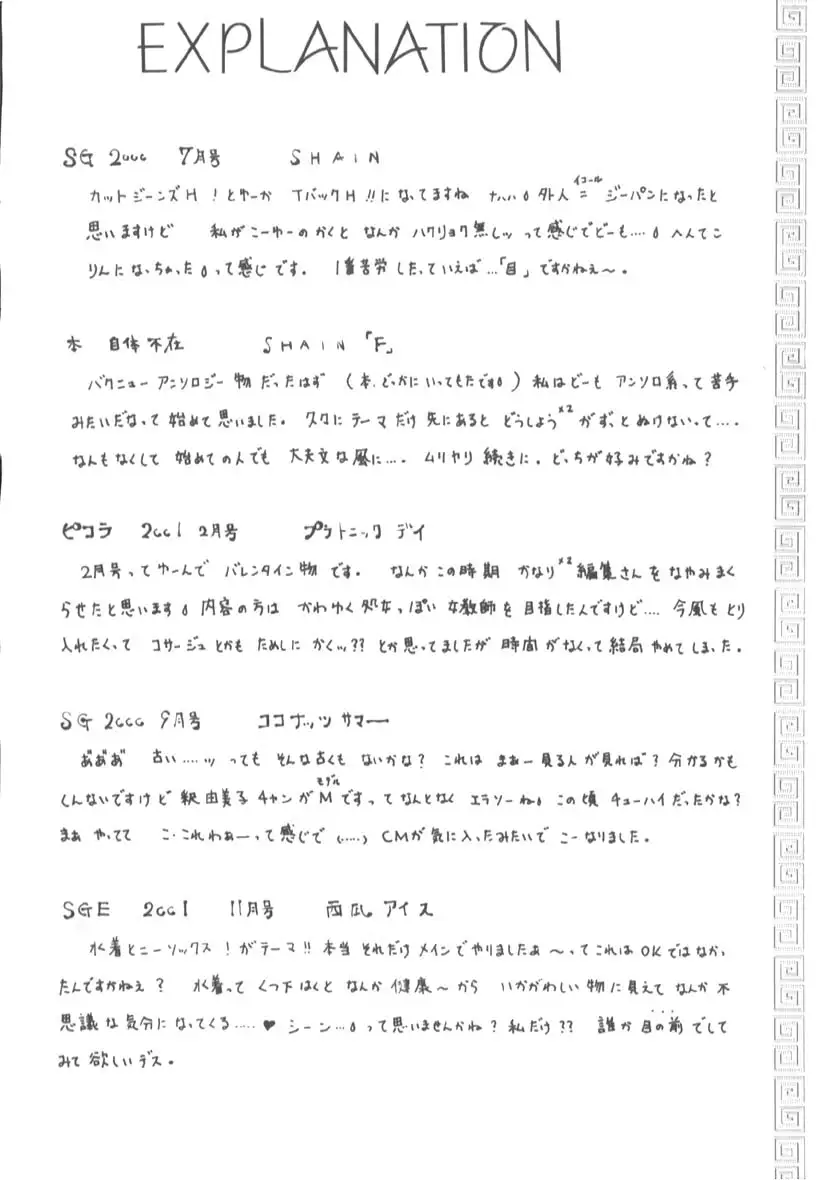 EXPLANATION
SG 2000 7月号 SHAIN
カットジーンズH!とゆーか TバックH!!になってますね ナハハ。外人=ジーパンになったと
イコール
思いますけど 私がこーゆーのかくと なんか ハクリョク無しッ って感じでどーも....。へんてこ
りんになっちゃった。って感じです。1番苦労したっていえば...「目」ですかねぇ〜。
本 自体不在 SHAIN「F」
バクニューアンソロジー物だったはず (本、どっかにいってもたです。) 私はどーも アンソロ系って苦手
みたいだなって始めて思いました。久々にテーマだけ先にあると どうしよう×2がずっとぬけないって....
なんもなくして 始めての人でも 大丈夫な風に.... ムリヤリ続きに。どっちが好みですかね?
ピコラ 2001 2月号 プラトニックデイ
2月号ってゆーんで バレンタイン物です。なんかこの時期 かなり×2編集さんをなやみまく
らせたと思います。内容の方は かわゆく処女っぽい女教師を目指したんですけど.... 今風もとり
入れたくって コサージュとかも ためしに かくッ?? とか思ってましたが 時間がなくって結局やめてしまった。
SG 2000 9月号 ココナッツサマー
あ゛あ゛あ゛ 古い....ッ っても そんな古くもないかな? これは まぁー見る人が見れば?分かるかも
モデル
しんないですけど 釈由美子チャンがMですってなんとなく エラソーね。この頃 チューハイだったかな?
まぁ やってて こ・これわぁーって感じで(.....) CMが気に入ったみたいで こーなりました。
SGE 2001 11月号 西瓜アイス
水着とニーソックス!がテーマ!!本当 それだけメインでやりましたぁ〜ってこれはOKではなかっ
たんですかねぇ? 水着って くつ下はくと なんか 健康〜から いかがわしい物に見えて なんか不
思議な気分になってくる.....♥ シーン...。って思いませんかね?私だけ?? 誰か目の前でして
みて欲しいデス。